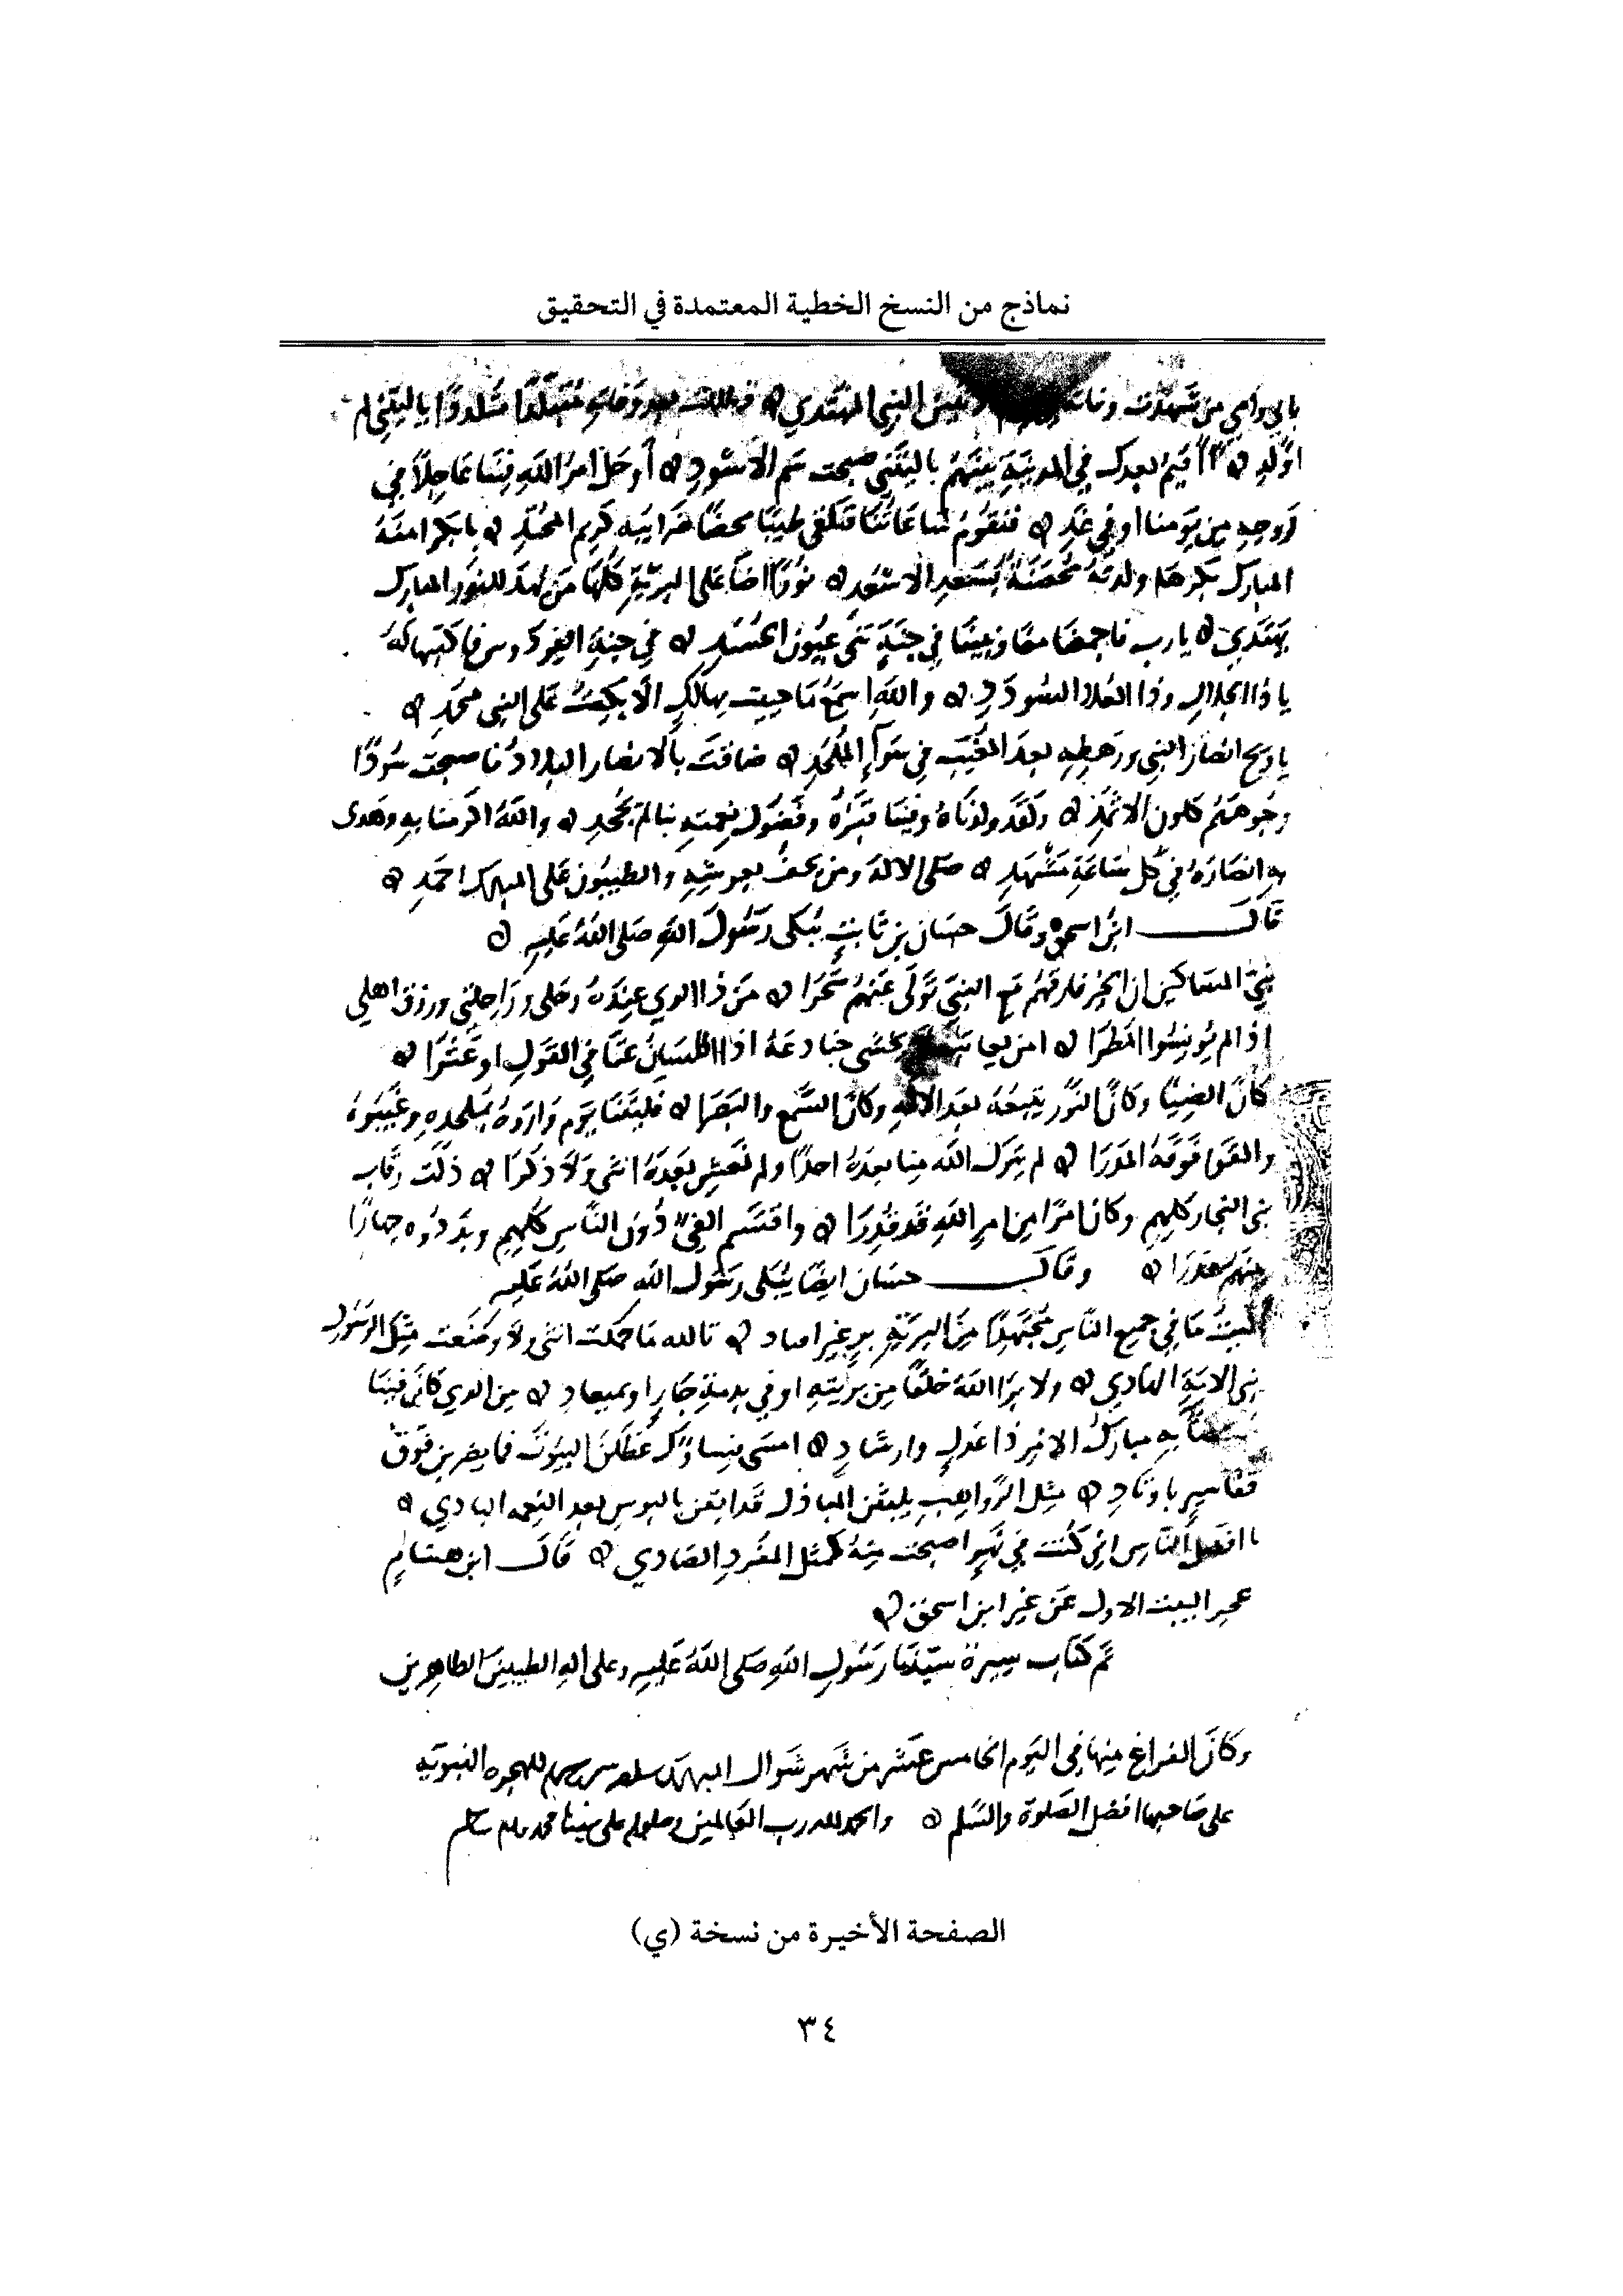 نماذج من النسخ الخطية المعتمدة في التحقيق
بابي وامي من شهدت وفاته النبي المهتدي فظللت بعد وفاته متبلدا متلددا ياليتني لم
اولد أاقيم بعدك في المدينة بينهم ياليتني صبحت سم الاسود أو حل امر الله فينا عاجلا في
روحة من يومنا او في غد فتقوم ساعاتنا فنلقى طيبا محضا ضرايبه كريم المحتد يا بكر امنة
المبارك بكرها ولدته محصنة بسعد الاسعد نورا اضا على البرية كلها من يهد للنور المبارك
يهتدي يا رب فاجمعنا معا ونبينا في جنة تثنى عيون الحسد في جنة الفردوس فاكتبها له
يا ذا الجلال وذا العلا والسودد والله اسمع ما حييت بهالك الا بكيت على النبي محمد
يا ويح انصار النبي ورهطه بعد المغيب في سواء الملحد ضاقت بالانصار البلاد فاصبحت سودا
وجوههم كلون الاثمد ولقد ولدناه وفينا قبره وفضول نعمته بنا لم يجحد والله اكرمنا به وهدى
به انصاره في كل ساعة مشهد صلى الاله ومن يحف بعرشه والطيبون على المبارك احمد
قال ابن اسحق وقال حسان بن ثابت يبكى رسول الله صلى الله عليه
نبي المساكين ان الخير فارقهم مع النبي تولى عنهم سحرا من ذا الذي عنده رحلى وراحلتي ورزق اهلي
اذا لم يونسوا المطرا ام من يخشى جنادعه اذا اللسان عتا في القول او عثرا
كان الضيا وكان النور يتبعه بعد الاله وكان السمع والبصرا فليتنا يوم واروه بملحده وغيبوه
والقوا فوقه المدرا لم يترك الله منا بعده احدا ولم يعش بعده انثى ولا ذكرا ذلت رقاب
بني النجار كلهم وكان امرا من امر الله قد قدرا واقتسم الفيء دون الناس كلهم وبددوه جهارا
بينهم هدرا وقال حسان ايضا يبكى رسول الله صلى الله عليه
اليت ما في جميع الناس مجتهدا من البرية بر غير افناد تالله ما حملت انثى ولا وضعت مثل الرسول
نبي الامة الهادي ولا برا الله خلقا من بريته اوفى بذمة جار او بميعاد من الذي كان فينا
يستضا به مبارك الامر ذا عدل وارشاد امسى نساوك عطلن البيوت فما يضربن فوق
قفا ستر باوتاد مثل الرواهب يلبسن المباذل قد ايقن بالبوس بعد النعمه البادي
يا افضل الناس اني كنت في نهر اصبحت منه كمثل المفرد الصادي قال ابن هشام
عجز البيت الاول عن غير ابن اسحق
تم كتاب سيرة سيدنا رسول الله صلى الله عليه وعلى اله الطيبين الطاهرين
وكان الفراغ منها في اليوم الخامس عشر من شهر شوال المبارك للهجره النبويه
على صاحبها افضل الصلوة والسلم والحمد لله رب العالمين وصلواته على سيدنا محمد
الصفحة الأخيرة من نسخة (ي)
٣٤